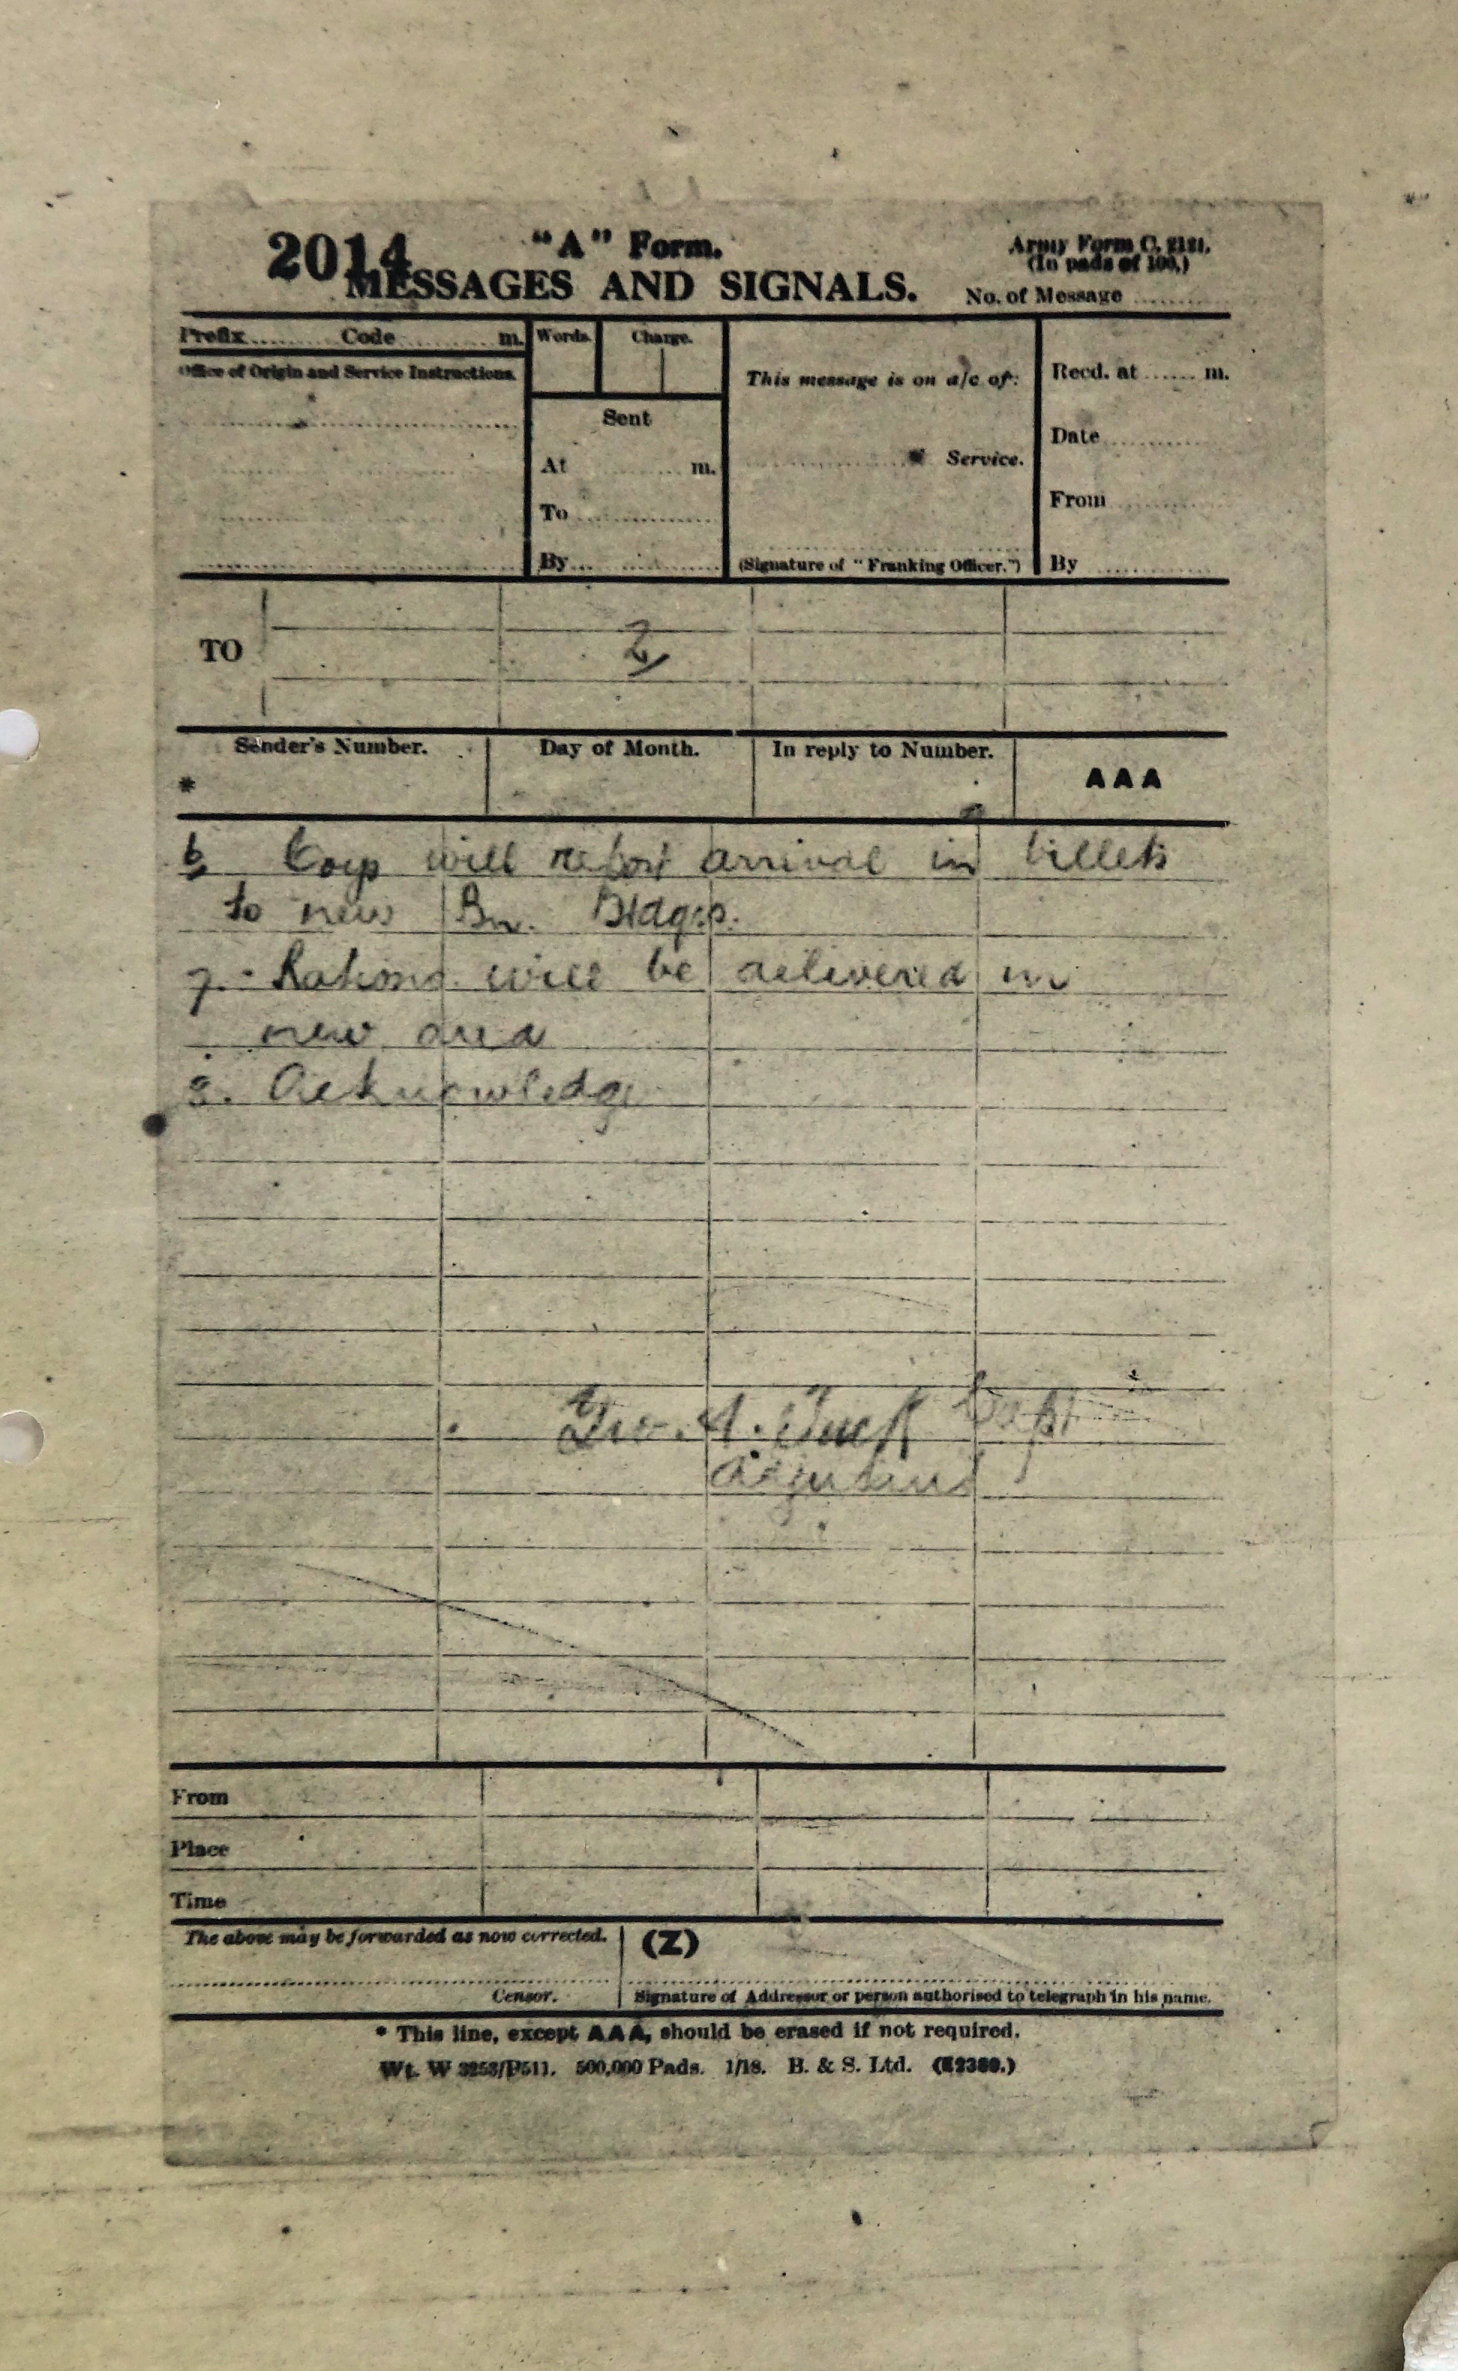 2014
"A" Form.
Army Form C. 2121.
(In pads of 100.)
MESSAGES AND SIGNALS.
No. of Message
Prefix Code m.
Words.
Charge.
Office of Origin and Service Instructions.
This message is on a/c of:
Recd. at m.
Sent
Date
At m.
Service.
From
To
By
(Signature of "Franking Officer.")
By
TO
2/
Sender's Number.
Day of Month.
In reply to Number.
AAA
*
6 Coys will report arrival in billets
to new Bn. Hdqrs.
7. Rations will be delivered in
new area
8. Acknowledge
Geo. A. Tuck Capt
Adjutant
From
Place
Time
The above may be forwarded as now corrected.
(Z)
Censor.
Signature of Addressor or person authorised to telegraph in his name.
* This line, except AAA, should be erased if not required.
Wt. W 3253/P511. 500,000 Pads. 1/18. B. & S. Ltd.